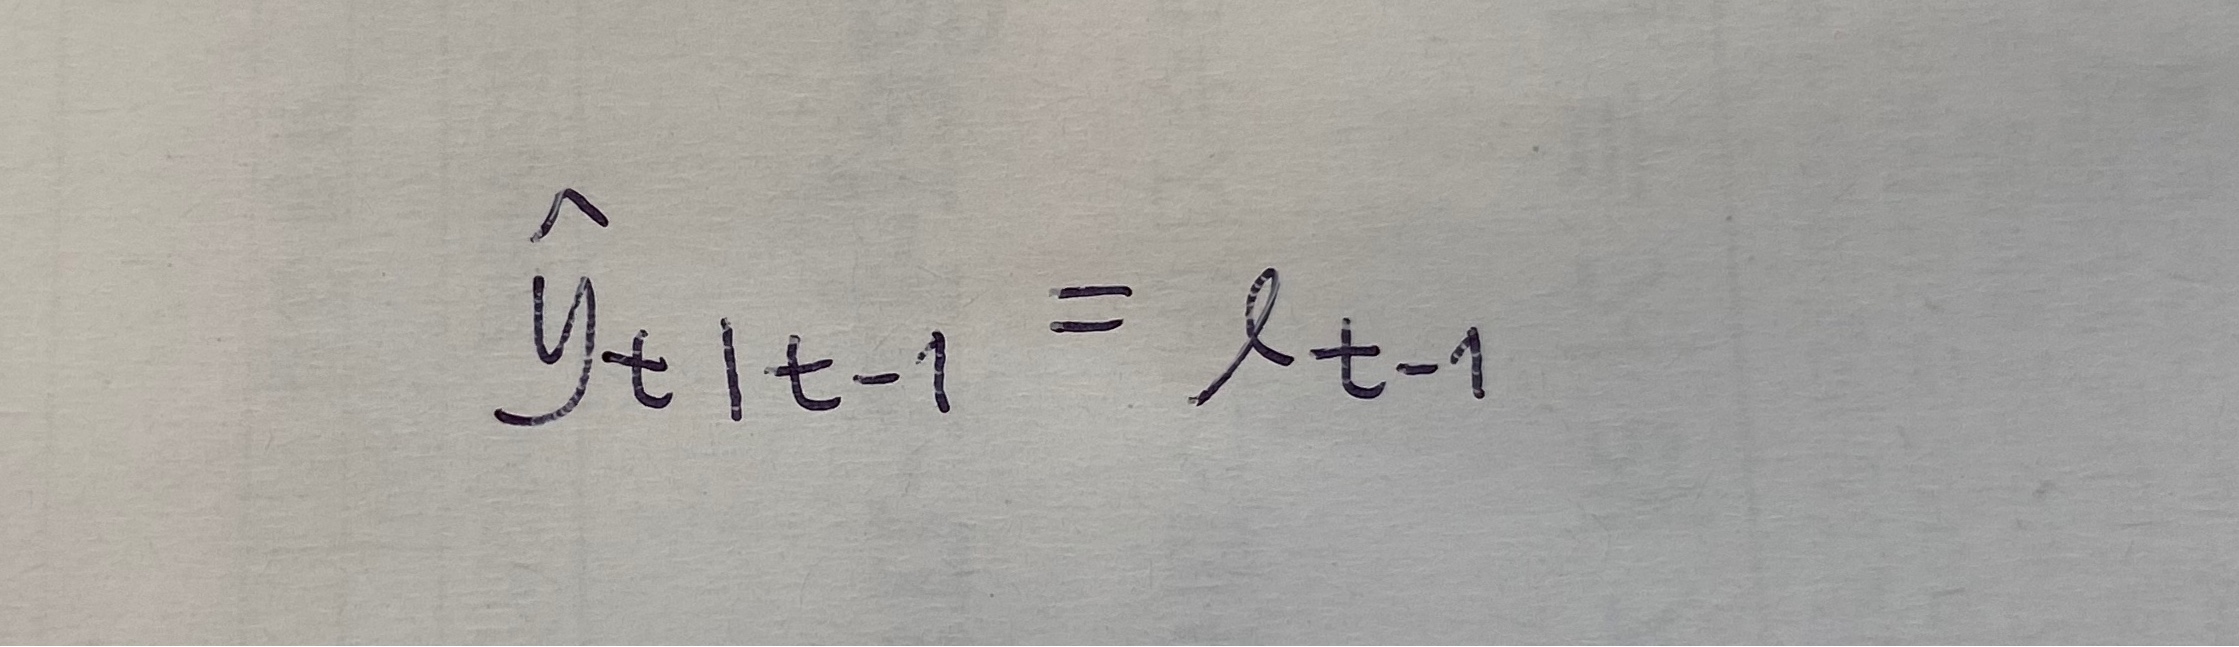 ŷ_{t|t-1} = ℓ_{t-1}